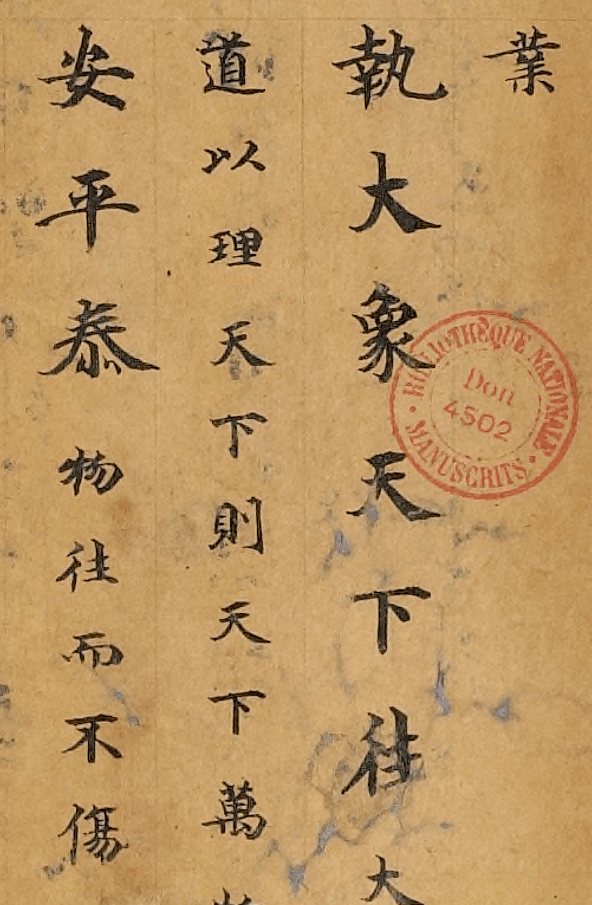 業
執大象天下往大
道以理天下則天下萬
安平泰物往而不傷
BIBLIOTHÈQUE NATIONALE
Don
4502
MANUSCRITS